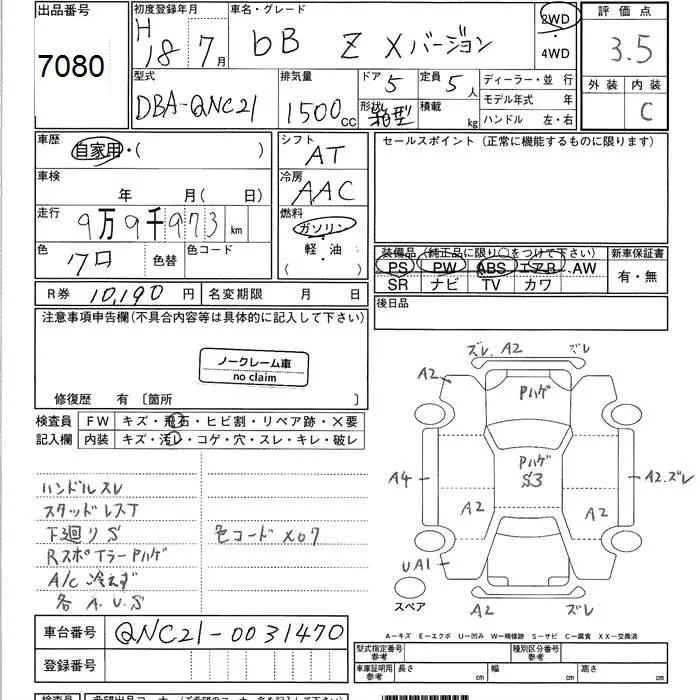 出品番号
7080
初度登録年月
H・18 7月
車名・グレード
bB Z Xバージョン
2WD
・
4WD
評価点
3.5
外装 内装
C
型式
DBA-QNC21
排気量
1500cc
ドア 5
定員 5人
形状 箱型
積載 kg
ディーラー・並 行
モデル年式 年
ハンドル 左・右
車歴
自家用・( )
車検
年 月( 日)
走行
9万9千973km
色
クロ
色替
色コード
シフト
AT
冷房
AAC
燃料
ガソリン
・
軽・油
( )
セールスポイント(正常に機能するものに限ります)
装備品(純正品に限り○をつけて下さい)
PS PW ABS エアB AW
SR ナビ TV カワ
新車保証書
有・無
R券 10,190円
名変期限 月 日
後日品
注意事項申告欄(不具合内容等は具体的に記入して下さい)
ノークレーム車
no claim
修復歴 有 〔箇所 〕
検査員
記入欄
FW キズ・飛石・ヒビ割・リペア跡・×要
内装 キズ・汚レ・コゲ・穴・スレ・キレ・破レ
ハンドルスレ
スタッドレスT
下廻りS
RスポイラーPハゲ
A/C 冷えず
各 A.U.S
色コード X07
ズレ A2 ズレ
A2
Pハゲ
Pハゲ
S3
A4
A2.ズレ
A2
A2
UA1
A2
ズレ
スペア
A-キズ E-エクボ U-凹み W-補修跡 S-サビ C-腐食 XX-交換済
車台番号 QNC21-0031470
登録番号
型式指定番号
参考
種別区分番号
参考
車庫証明用
参考
長さ cm
幅 cm
高さ cm
検査員
希望出品コーナー(ご希望のコーナー名を記